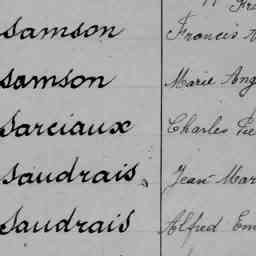 Samson Francis
Samson Marie Ang
Sarciaux Charles Pie
Saudrais Jean-Mar
Saudrais Alfred Em